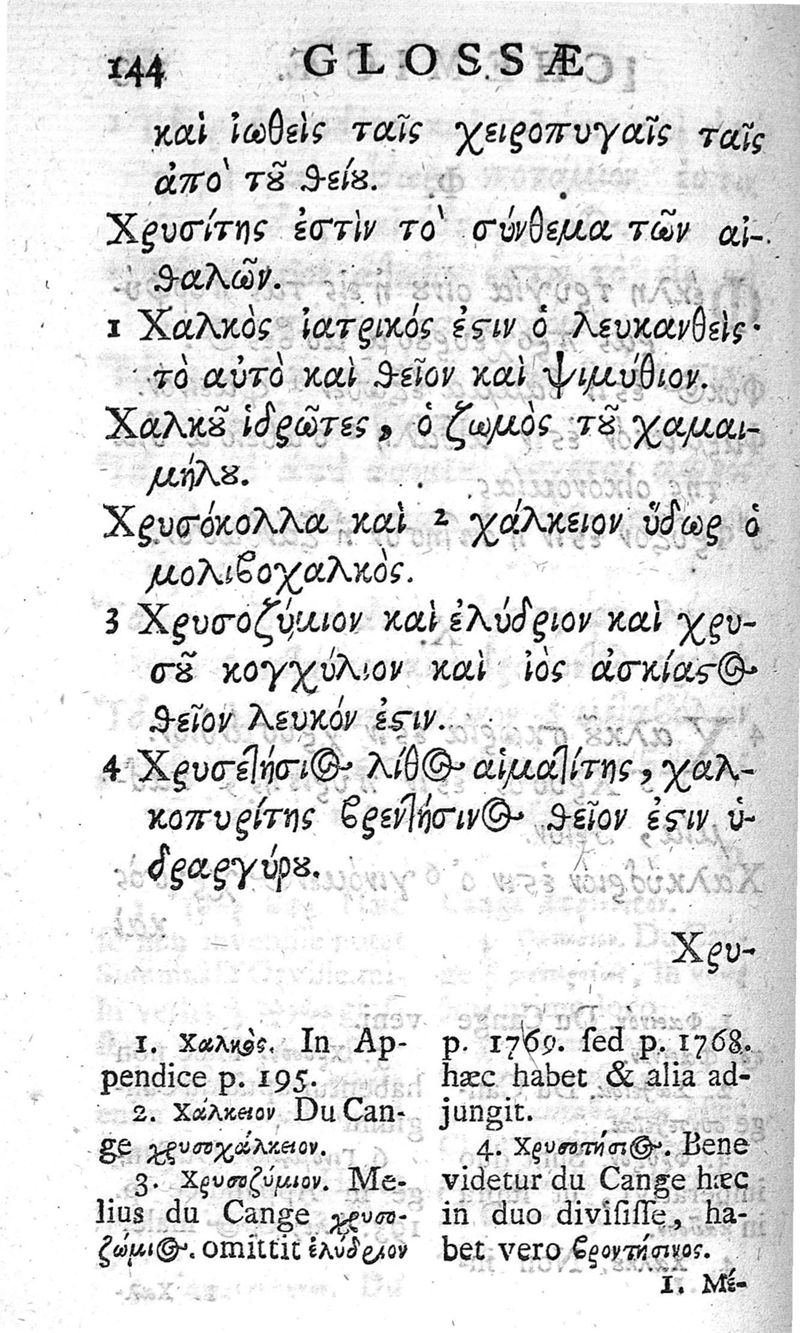 144 GLOSSÆ
καὶ ἰωθεὶς ταῖς χειροπυγαῖς ταῖς
ἀπὸ τȣ͂ θείȣ.
Χρυσίτης ἐστὶν τὸ σύνθεμα τῶν αἰ-
θαλῶν.
1 Χαλκὸς ἰατρικός ἐϛιν ὁ λευκανθεὶς·
τὸ αὐτὸ καὶ θεῖον καὶ ψιμύθιον.
Χαλκȣ͂ ἱδρῶτες, ὁ ζωμὸς τȣ͂ χαμαι-
μήλȣ.
Χρυσόκολλα καὶ 2 χάλκειον ὕδωρ ὁ
μολιβοχαλκὸς.
3 Χρυσοζύμιον καὶ ἐλύδριον καὶ χρυ-
σȣ͂ κογχύλιον καὶ ἰὸς ἀσκίαστος
θεῖον λευκόν ἐϛιν.
4 Χρυσετήσιος λίθος αἱματίτης, χαλ-
κοπυρίτης βρεντήσινος θεῖον ἐϛιν ὑ-
δραργύρȣ.
Χρυ-
1. Χαλκὸς. In Ap-
pendice p. 195.
2. Χάλκειον Du Can-
ge χρυσοχάλκειον.
3. Χρυσοζύμιον. Me-
lius du Cange χρυσο-
ζώμιος. omittit ἐλύδριον
p. 1769. ſed p. 1768.
hæc habet & alia ad-
jungit.
4. Χρυσοτήσιος. Bene
videtur du Cange hæc
in duo diviſiſſe, ha-
bet vero βροντήσινος.
1. Μέ-